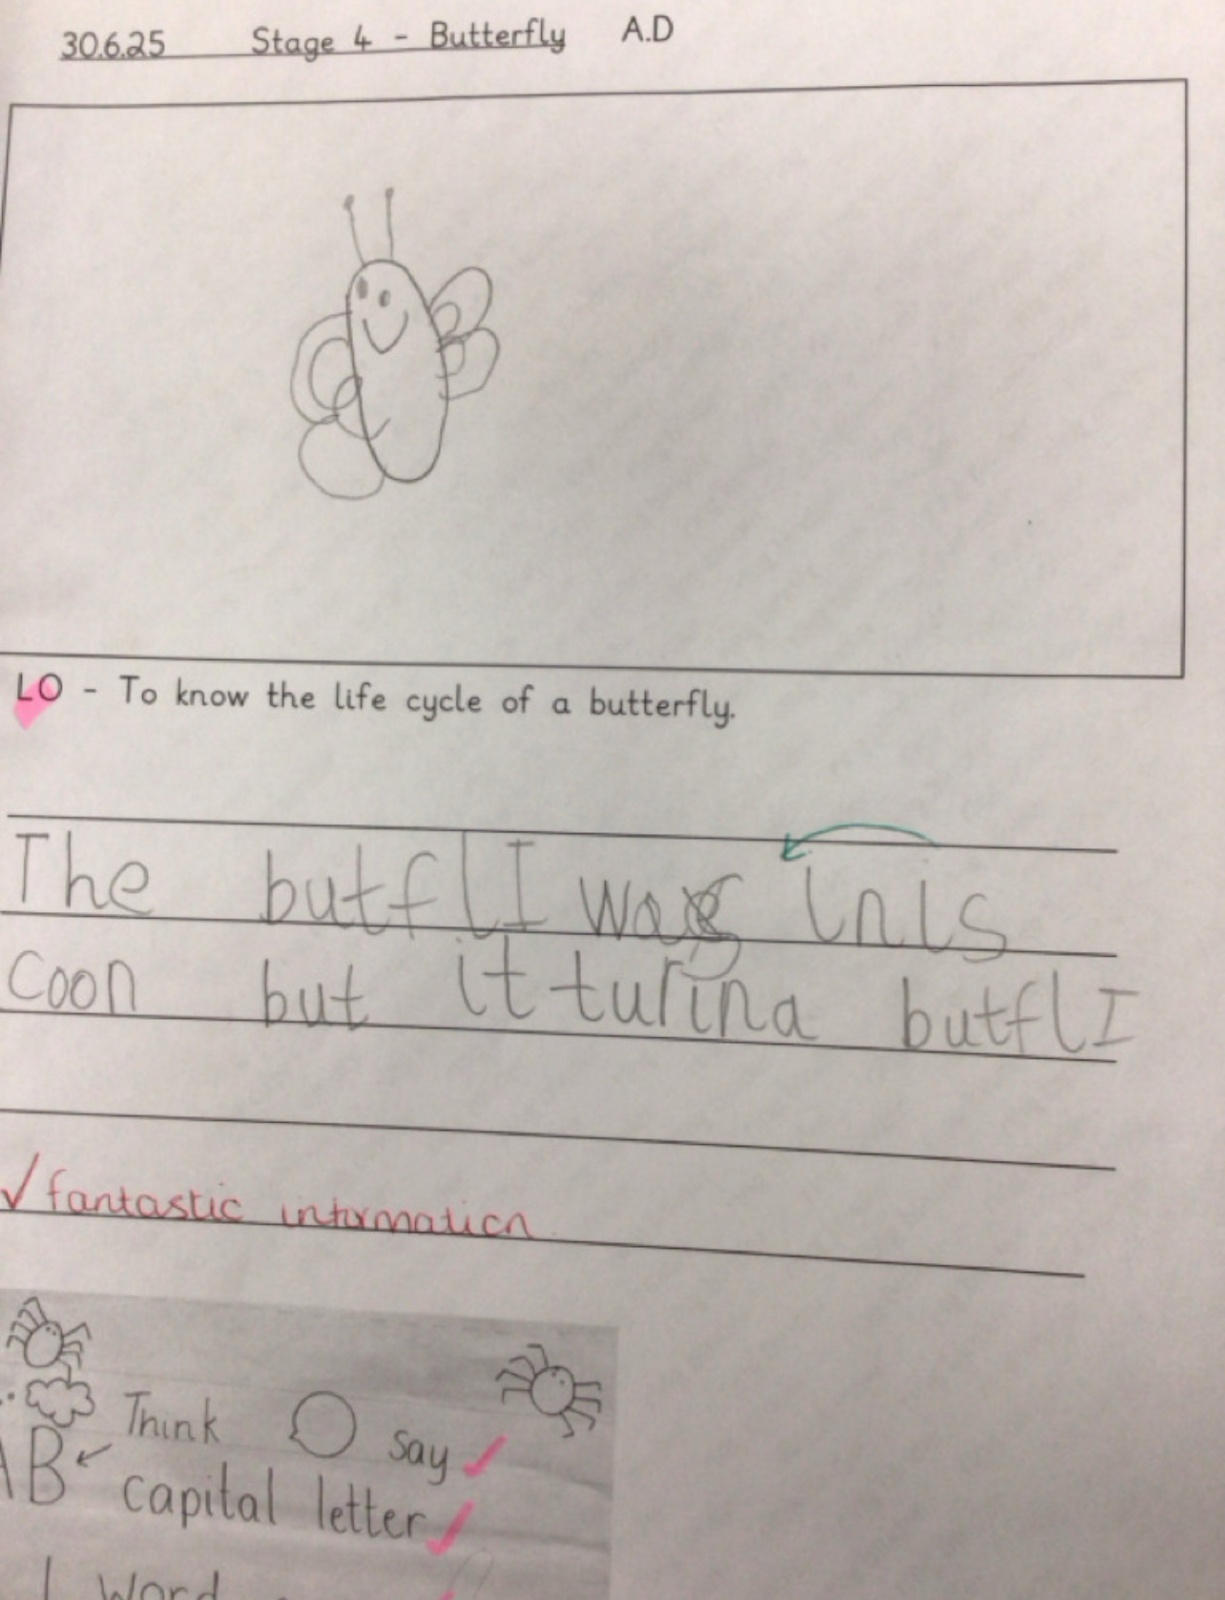 30.6.25 Stage 4 - Butterfly A.D
LO - To know the life cycle of a butterfly.
The butflI was inis
coon but it turina butflI
✓ fantastic information
Think say ✓
AB capital letter ✓
1 word